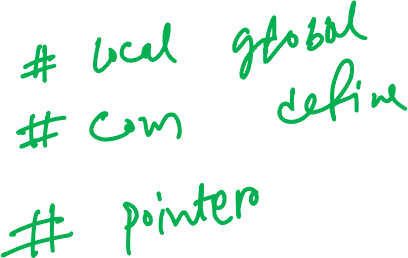 # local global
# com define
# pointers